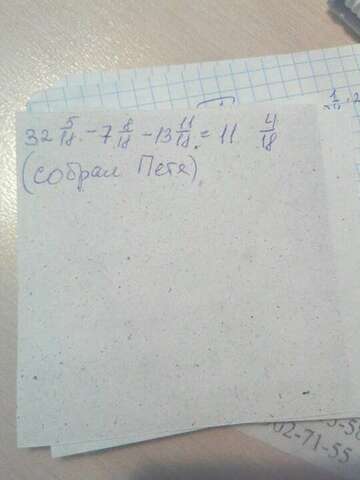 32 5/18 - 7 8/18 - 13 11/18 = 11 4/18
(собрал Петя)
02-71-55